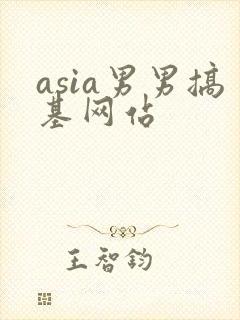 asia男男搞
基网站
王智钧